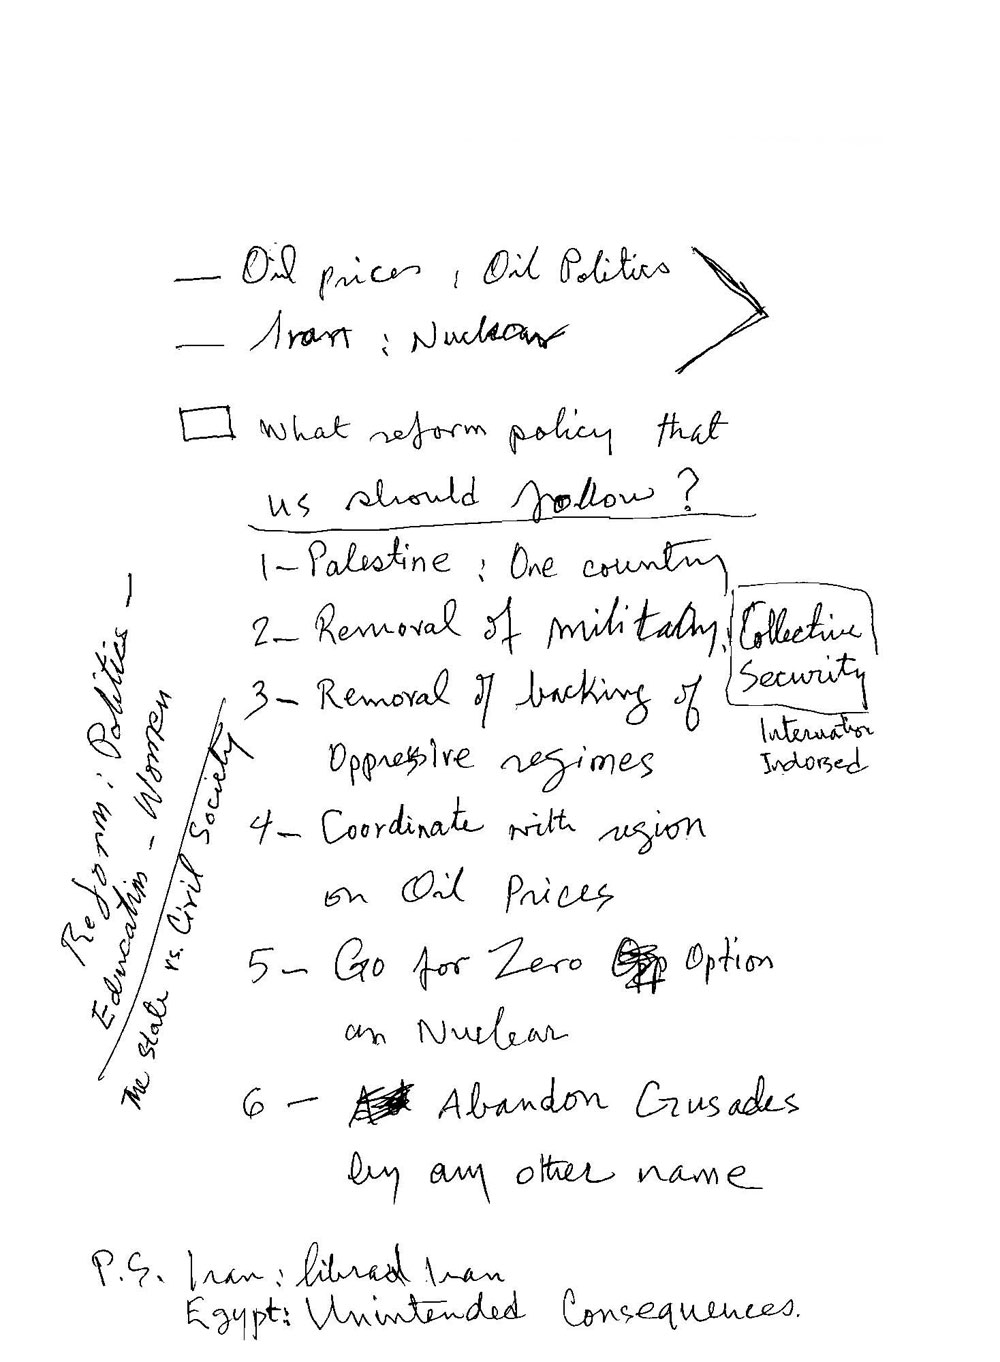 — Oil prices ; Oil Politics
— Iran : Nuclear
What reform policy that
us should follow ?
1- Palestine : One country
2- Removal of military,
Collective
Security
3- Removal of backing of
Internation
Indorsed
Oppressive regimes
4- Coordinate with region
on Oil Prices
5- Go for Zero Option
on Nuclear
6 - Abandon Crusades
by any other name
Reform : Politics —
Education - Women
The State vs. Civil Society
P.S. Iran : Iran
Egypt : Unintended Consequences.